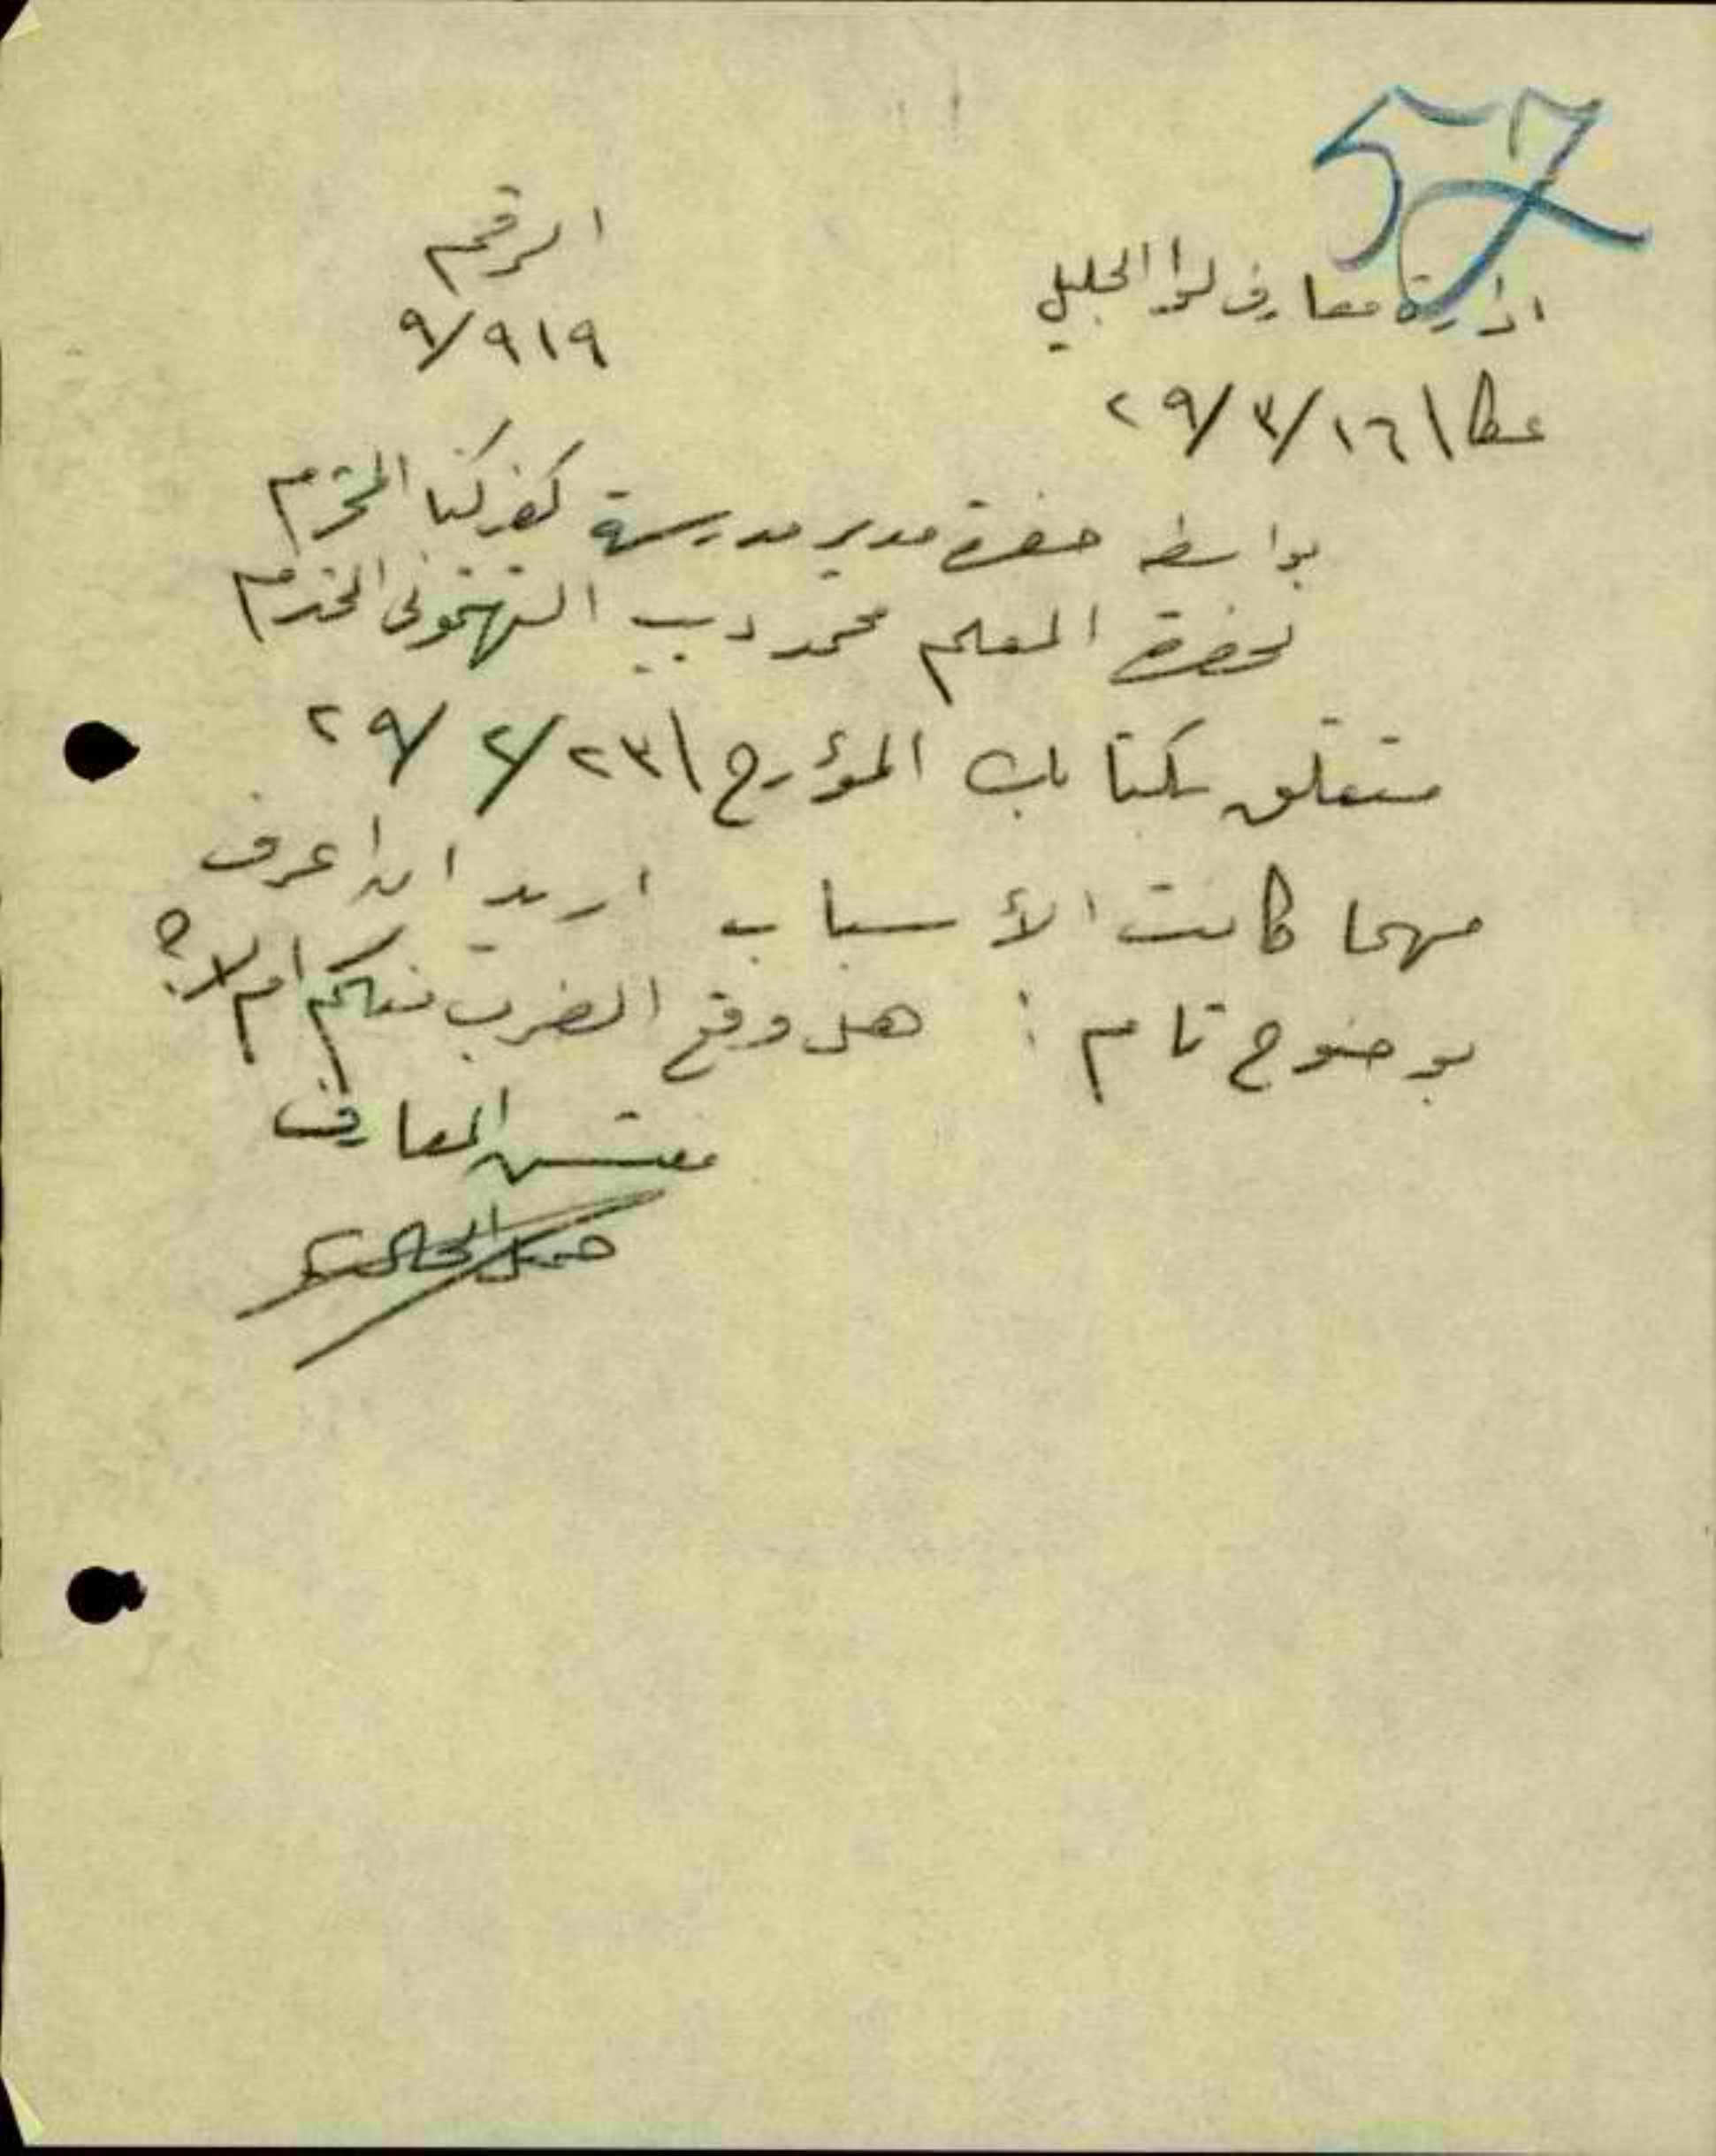 57
ادارة معارف لوا الجليل
الرقم
٩/٩١٩
عكا \ ١٦/٣/٢٩
بواسطة حضرة مدير مدرسة كفركنا المحترم
لحضرة المعلم محمد ديب المحترم
متعلق بكتابك المؤرخ \ ٢٣/٢/٢٩
مهما كانت الأسباب اريد ان اعرف
بوضوح تام : هل وقع الضرب منكم ام لا؟
مفتش المعارف